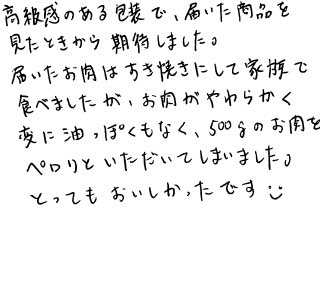 高級感のある包装で、届いた商品を
見たときから期待しました。
届いたお肉はすき焼きにして家族で
食べましたが、お肉がやわらかく
変に油っぽくもなく、500gのお肉を
ペロリといただいてしまいました。
とってもおいしかったです